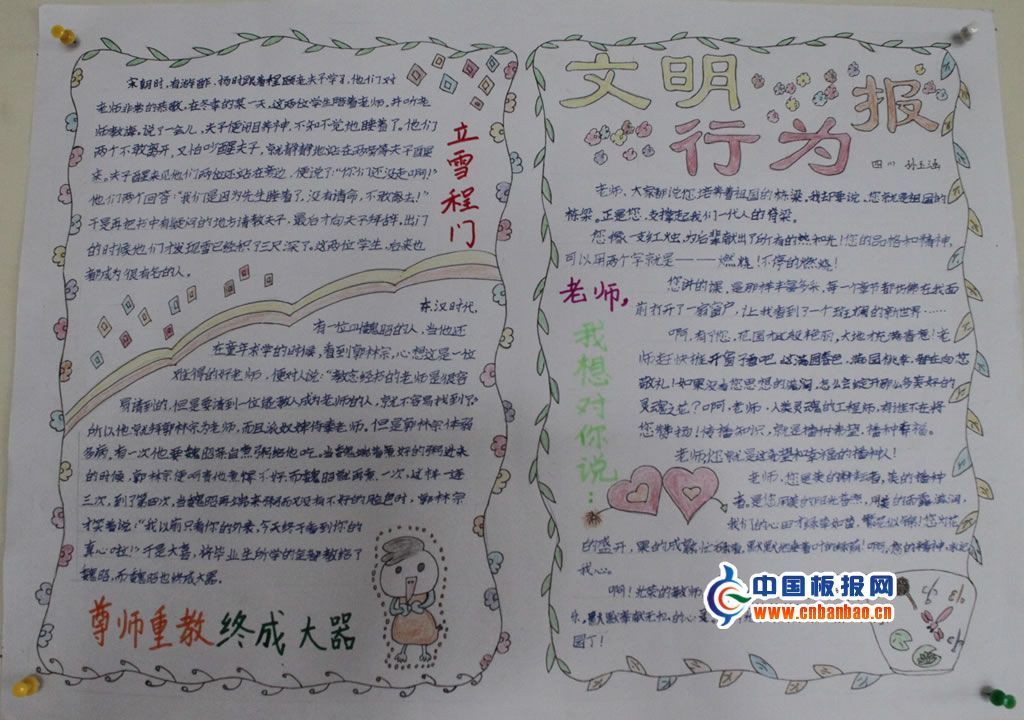 文明
行为
报
四(1) 孙玉涵
宋朝时,有游酢、杨时跟着程颐老夫子学习,他们对
老师非常的恭敬,在冬季的某一天,这两位学生陪着老师,并听老
师教诲,说了一会儿,夫子便闭目养神,不知不觉他睡着了。他们
两个不敢离开,又怕吵醒夫子,就静静地站在两旁等夫子醒
来。夫子醒来见他们两位还站在旁边,便说:“你们还没走啊!”
他们两个回答:“我们是因为先生睡着了,没有请命,不敢离去!”
于是再把书中有疑问的地方请教夫子,最后才向夫子拜辞。出门
的时候他们才发现雪已经积了三尺深了。这两位学生,后来也
都成为很有名的人。
立雪程门
东汉时代,
有一位叫魏昭的人,当他还
在童年求学的时候,看到郭林宗,心想这是一位
难得的好老师,便对人说:“教念经书的老师是很容
易请到的,但是要请到一位能教人成为老师的人,就不容易找到了。”
所以他就拜郭林宗为老师,而且派奴婢侍奉老师。但是郭林宗体弱
多病,有一次他要魏昭亲自煮粥给他吃。当魏昭端着煮好的粥进来
的时候,郭林宗便呵责他煮得不好,而魏昭就再煮一次,这样一连
三次,到了第四次,当魏昭再端来粥而又没有不好的脸色时,郭林宗
才笑着说:“我以前只看你的外表,今天终于看到你的
真心啦!”于是大喜,将毕业生所学的全部教给了
魏昭,而魏昭也终成大器。
尊师重教 终成大器
老师,大家都说您培养着祖国的栋梁。我却要说,您就是祖国的
栋梁。正是您,支撑起我们一代人的脊梁。
您像一支红烛,为后辈献出了所有的热和光!您的品格和精神,
可以用两个字就是———燃烧!不停的燃烧!
老师,
我想对你说:
您讲的课,是那样丰富多采,每一个章节都仿佛在我面
前打开了一扇窗户,让我看到了一个斑斓的新世界……
啊,有了您,花园才这般艳丽,大地才充满春意!老
师赶快推开窗子看吧,这满园春色,满园桃李,都在向您
敬礼!如果没有您思想的滋润,怎么会绽开那么多美好的
灵魂之花?啊,老师,人类灵魂的工程师,有谁不在将
您赞扬!传播知识,就是播种希望,播种幸福。
老师您就是这希望和幸福的播种人!
老师,您是美的耕耘者,美的播种
者。是您用美的阳光普照,用美的雨露滋润,
我们的心田才绿草如茵,繁花似锦!您为花
的盛开,果的成熟忙碌着,默默地垂着叶的绿荫!啊,您的精神,永记
我心。
啊!光荣的教师
乐,默默奉献无私的心
园丁!
中国板报网
www.cnbanbao.cn